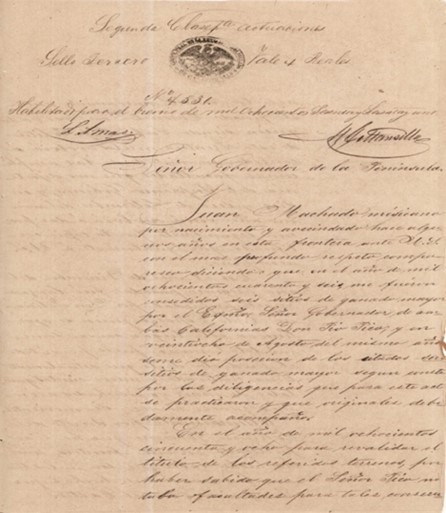 Segunda Clase pª actuaciones
Sello Tercero Vale 4 Reales
Nº 4531.
Habilitado para el bienio de mil ochocientos sesenta y sesenta y uno
Señor Governador de la Peninsula.
Juan Machado mexicano
por nacimiento y avecindado hace algu-
nos años en esta frontera ante U.S.
con el mas profundo respeto compa-
resco diciendo: que en el año de mil
ochocientos cuarenta y seis me fueron
consedidos seis sitios de ganado mayor
por el Exmo. Señor Gobernador de am-
bas Californias Don Pio Pico; y en
veintiocho de Agosto del mismo año
seme dio posecion de los citados seis
sitios de ganado mayor segun consta
por las diligencias que para este acto
se practicaron y que originales debi-
damente acompaño.
En el año de mil ochocientos
cincuenta y ocho para revalidar el
titulo de los referidos terrenos, por
haber sabido que el Señor Pico no
tuba facultades para tales consecio